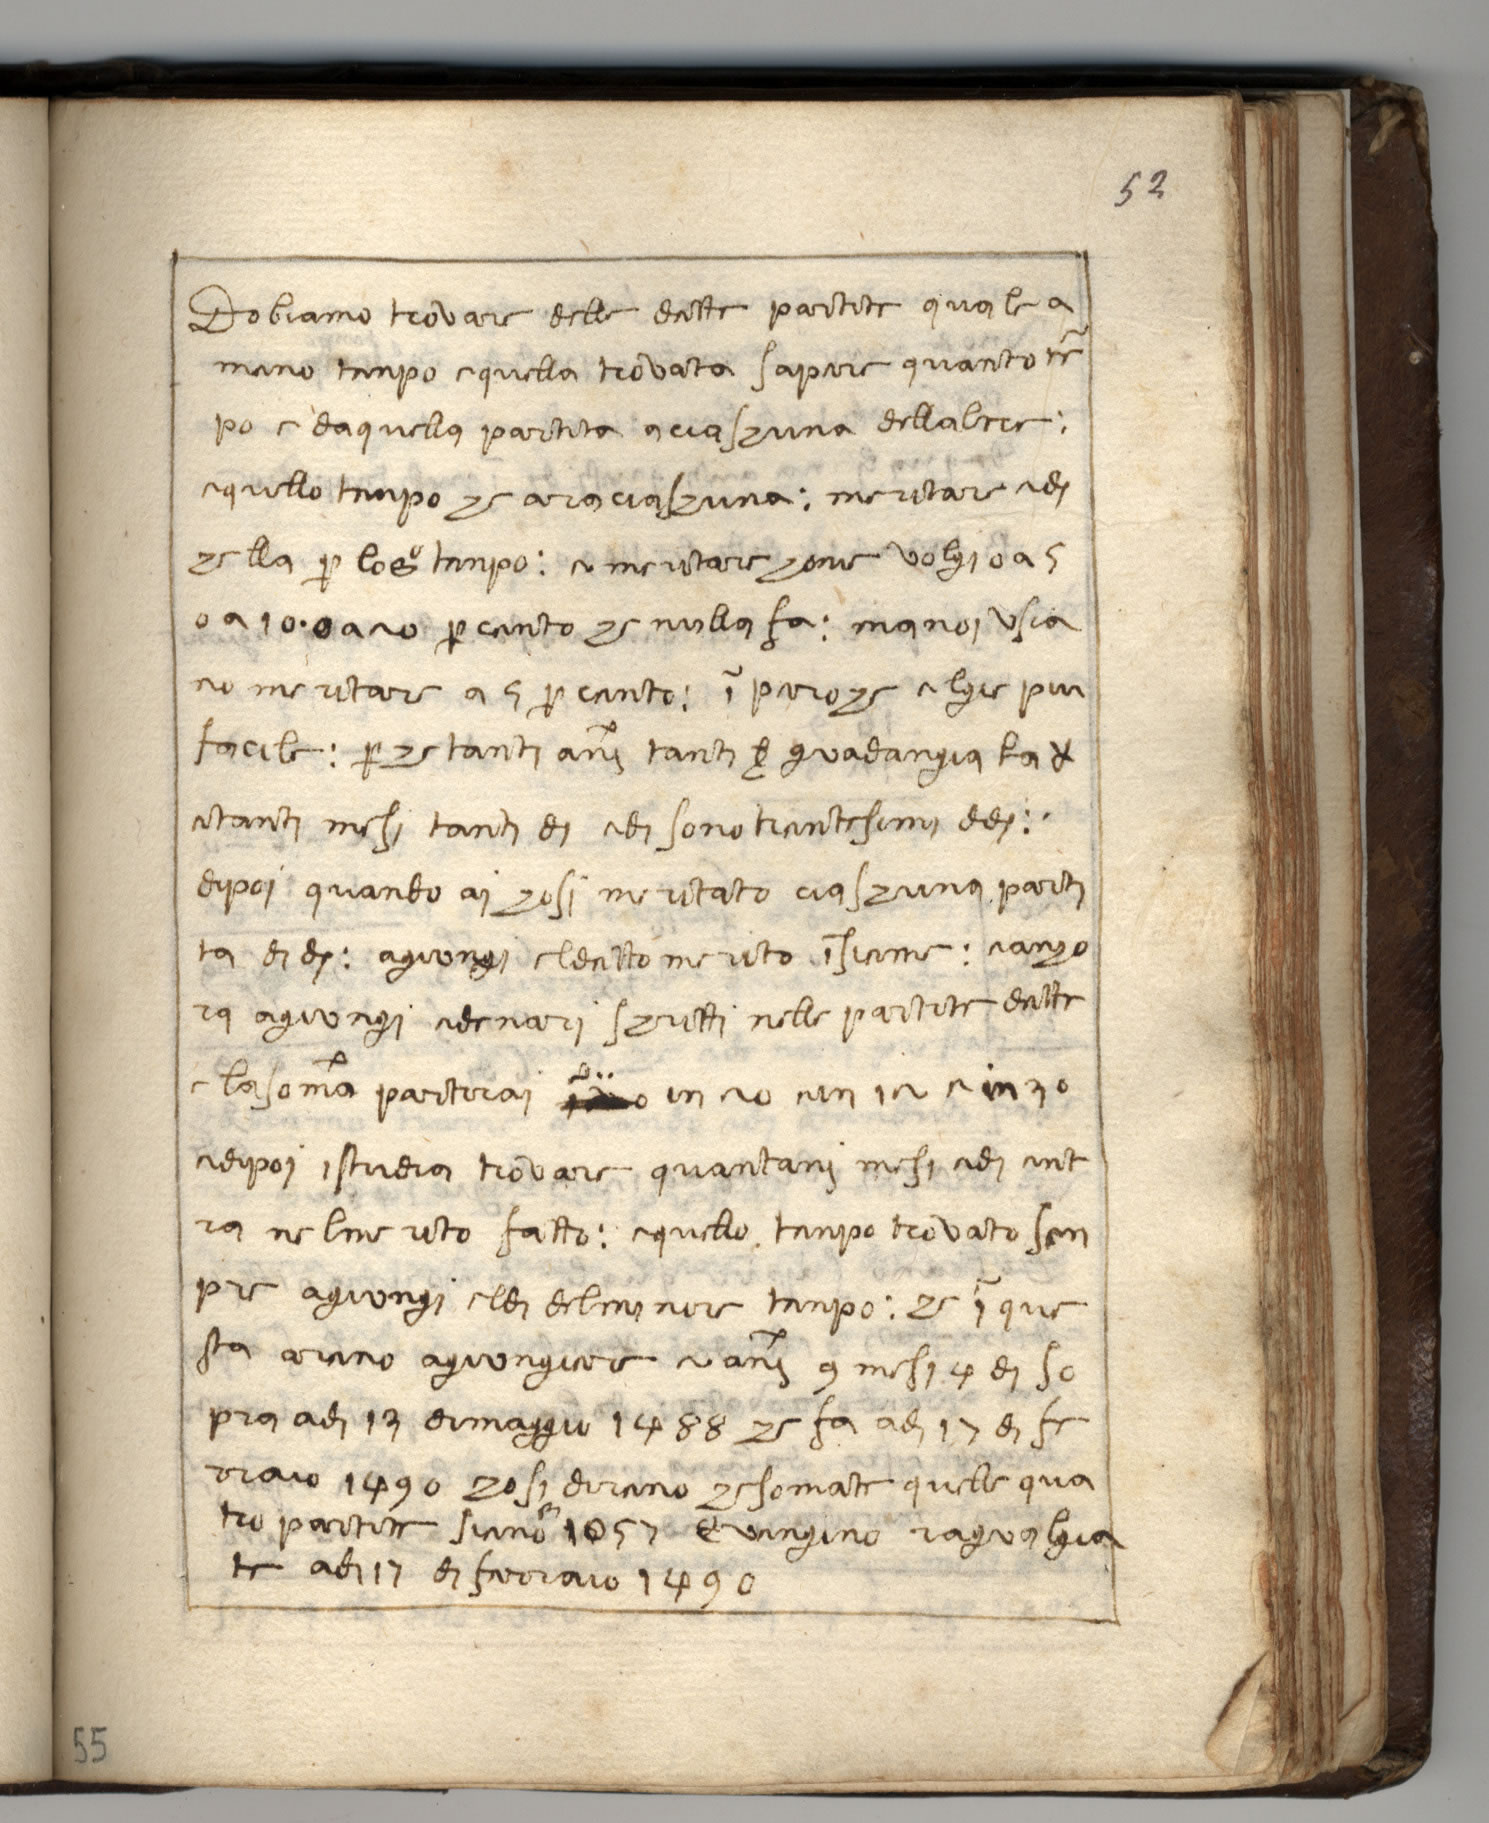 52
Dobiamo trovare delle dette partite quale a
meno tenpo equella trovata sapere quanto tē
po e daquella partita aciaszuna dellaltre:
equello tenpo ze araciaszuna: meritare edi
zella p̄ logº tenpo: e meritare zome volgi o a 5
o a 10·o a 20 p̄ cento ze nulla fa: manoi usia
no meritare a 5 p̄ cento: ī peroze elgie piu
facile: p̄ ze tanti añi tanti guadangia la
etanti mesi tanti di edi sono trentesimi ddi:
dipoi quando ai zosi meritato ciaszuna parti
ta di di: agiungi eldetto merito īsieme: eanzo
ra agiungi edenari szritti nelle partite dette
e lasom̄a partirai in 20 ein 12 e in 30
edipoi istudia trovare quantani mesi edi ent
ra nelmerito fatto: equello tenpo trovato sen
pre agiungi eldi delminore tenpo: ze ī que
sta areno agiungiere añi 9 mesi 4 di so
pra adi 13 dimaggio 1488 ze fa adi 17 di fe
braio 1490 zosi direno zesomate quelle qua
tro partite sieno 1057 e vengino ragualgia
te adi 17 di febraio 1490
55